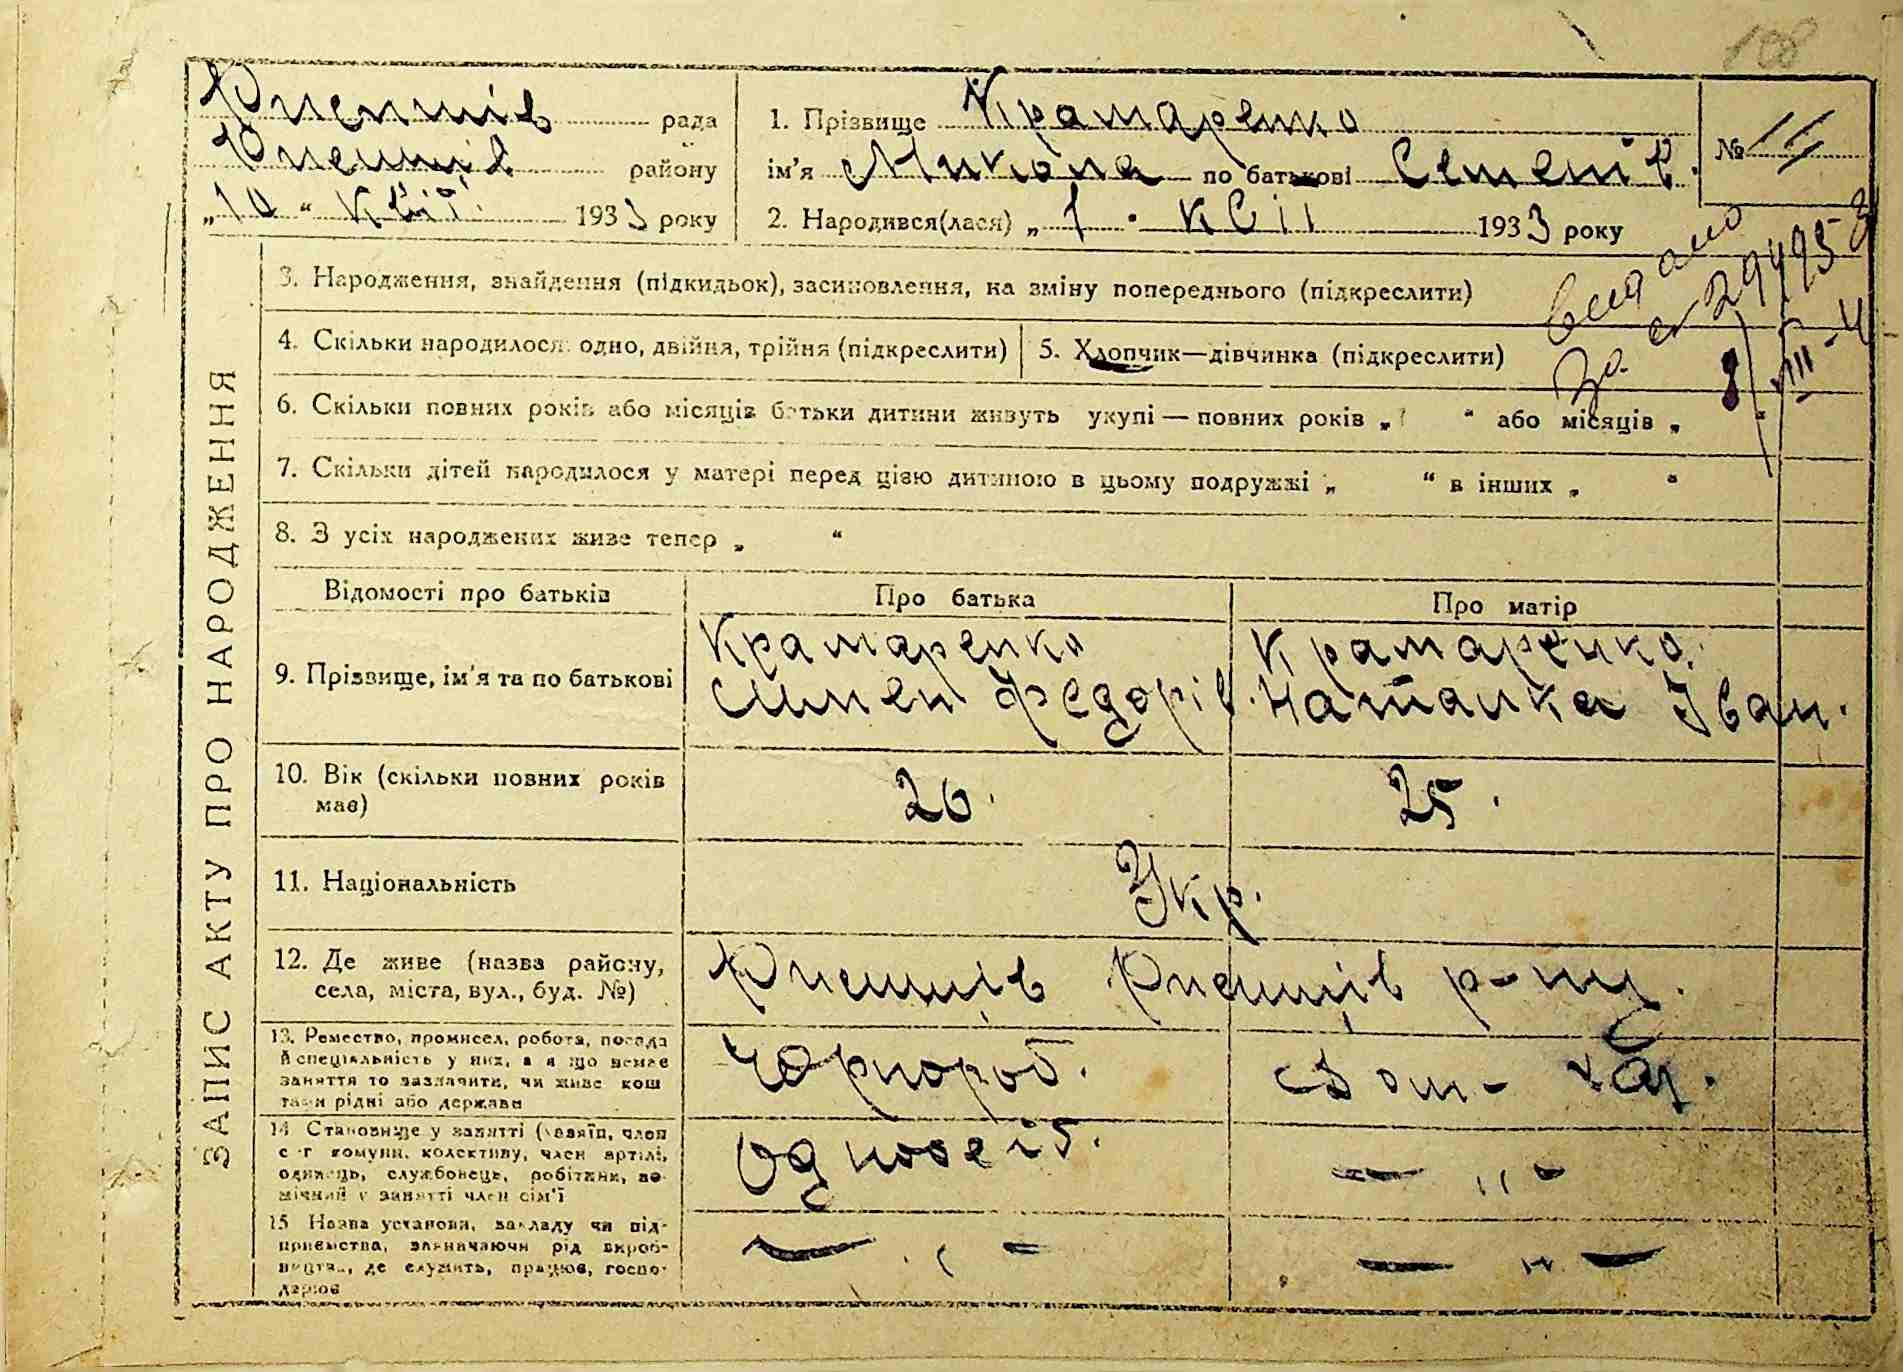 108
рада
району
„10 “ Квіт. 1933 року
1. Прізвище Крамаренко
ім'я Микола по батькові Семенів.
2. Народився(лася) „ 1 . 1933 року
№
видано
за
ЗАПИС АКТУ ПРО НАРОДЖЕННЯ
3. Народження, знайдення (підкидьок), засиновлення, на зміну попереднього (підкреслити)
4. Скільки народилося: одно, двійня, трійня (підкреслити)
5. Хлопчик—дівчинка (підкреслити)
6. Скільки повних років або місяців батьки дитини живуть укупі — повних років „ “ або місяців „ “
7. Скільки дітей народилося у матері перед цією дитиною в цьому подружжі „ “ в інших „ “
8. З усіх народжених живе тепер „ “
Відомості про батьків
Про батька
Про матір
9. Прізвище, ім'я та по батькові
Крамаренко
Симен Федорів.
Крамаренко
Наталка Іван.
10. Вік (скільки повних років має)
26.
25.
11. Національність
Укр.
12. Де живе (назва району,
села, міста, вул., буд. №)
13. Ремество, промисел, робота, посада
й спеціяльність у них, а я що немає
заняття то зазначити, чи живе кош
тами рідні або держави
Чорнороб.
Дом-
14 Становище у занятті (хазяїн, член
с-г комуни, колективу, член артілі,
одинець, службовець, робітник, по-
мічний у занятті член сім'ї
Одноосіб.
— „ —
15 Назва установи, закладу чи під-
приємства, зазначаючи рід вироб-
ництва, де служить, працює, госпо-
дарює
— „ —
— „ —